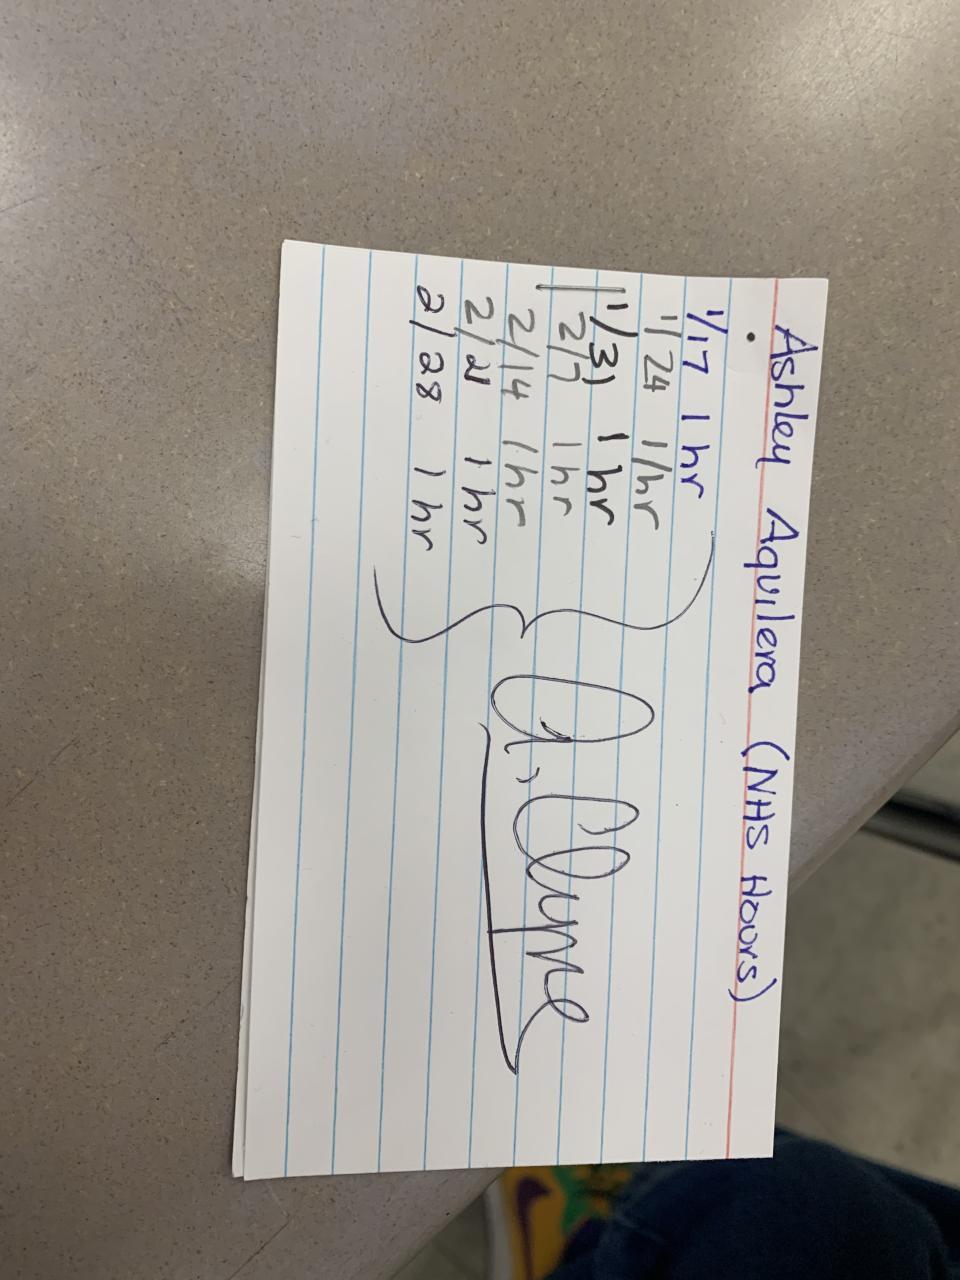 Ashley Aquilera (NHS Hours)
1/17 1 hr
1/24 1/hr
1/31 1 hr
2/7 1 hr
2/14 1 hr
2/21 1 hr
2/28 1 hr